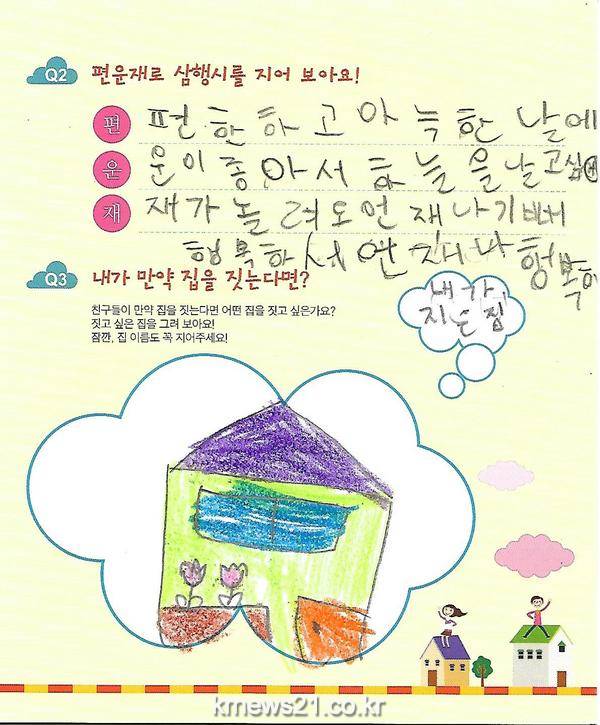 Q2 편운재로 삼행시를 지어 보아요!
편 편한하고아늑한날에
운 운이좋아서하늘을날고싶어
재 재가놀려도언재나기뻐
행복하서언재나행복해
Q3 내가 만약 집을 짓는다면?
친구들이 만약 집을 짓는다면 어떤 집을 짓고 싶은가요?
짓고 싶은 집을 그려 보아요!
잠깐, 집 이름도 꼭 지어주세요!
내가
지은집
kmews21.co.kr